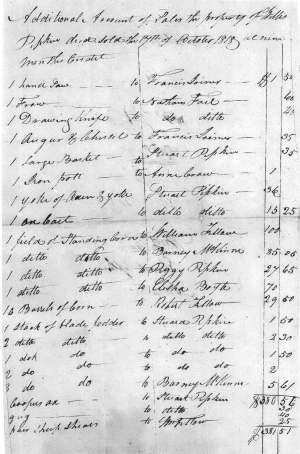 Additional Account of Sales the property of Willis
Pipkin decd sold the 19th of October 1818 at nine
Months Credit
1 hand Saw to Francis Joiner $1 50
1 Frow to Nathan Fail 60
1 Drawing Knife to do ditto
1 Augur & Chissel to Francis Joiner 35
1 Large Basket to Stuart Pipkin 35
1 Iron pott to 1
1 yoke of oxen & yoke Stuart Pipkin 36
1 ox Cart to ditto ditto 15 25
1 field of Standing Corn to William 100
1 ditto ditto to Barney 85 05
1 ditto ditto to Peggy Pipkin 27 65
1 ditto ditto to Elisha 70
10 Barrels of Corn to 29 50
1 Stack of blade fodder to Stuard Pipkin 1 50
2 ditto ditto to ditto ditto 2 30
1 do do to do do 1 50
2 do do to do do 2
3 do do to Barney 5 61
Coopers ax to Stuart Pipkin $380 56
to ditto 30
pair Sheep Shears to 25
$381 51